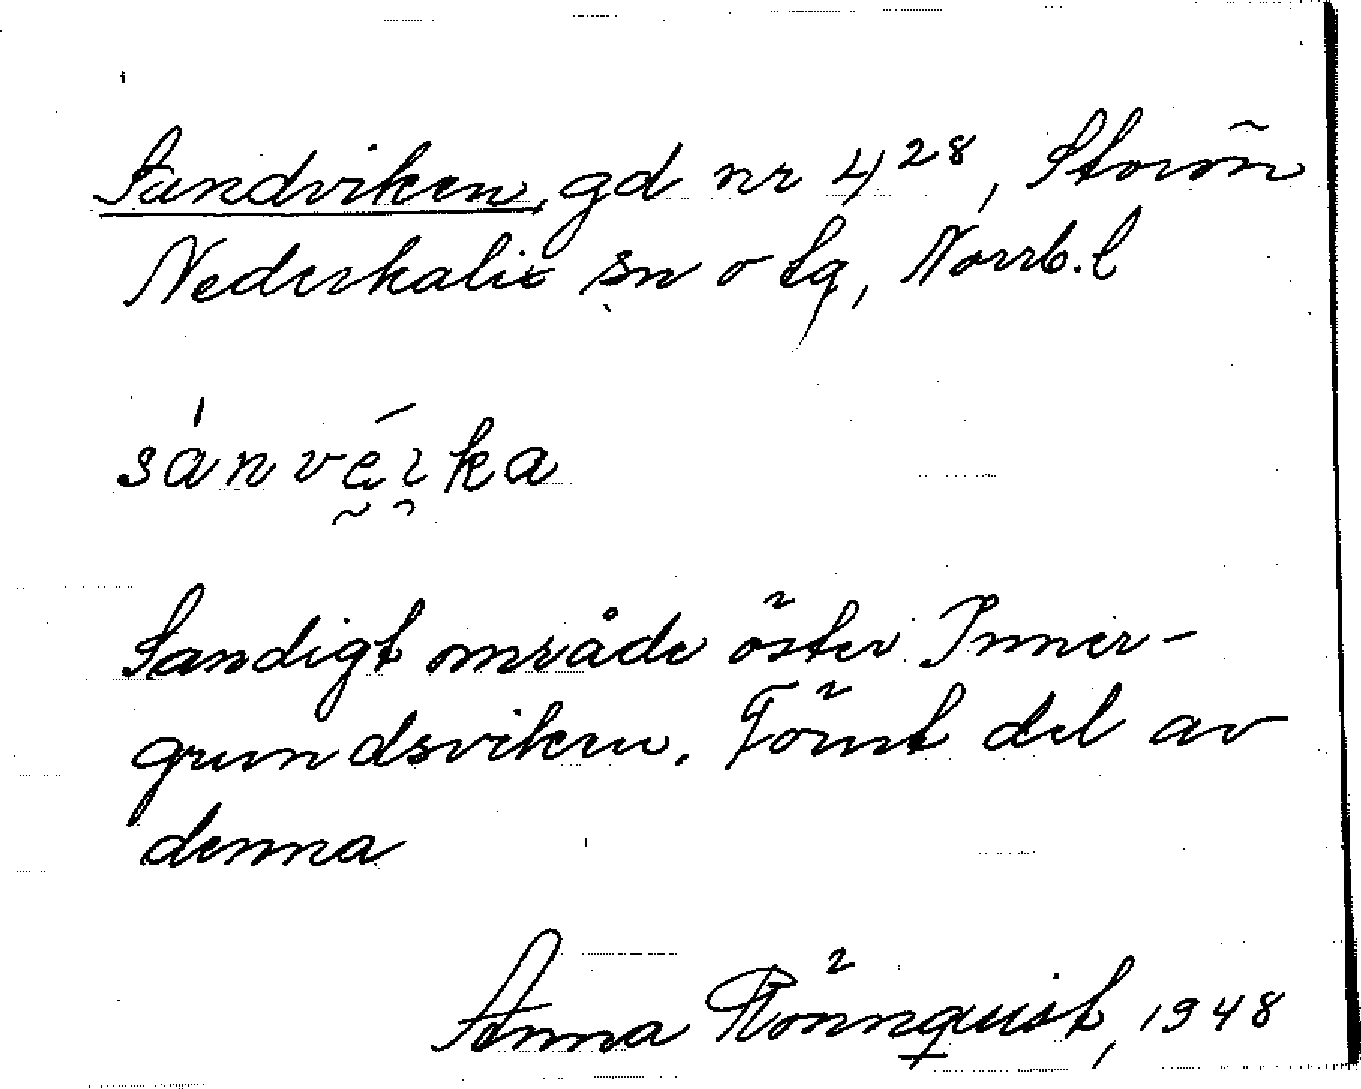 Sandviken, gd nr 4²⁸, Storön
Nederkalix sn o tg, Norrb. l
sánvéi̯ka
Sandigt område öster Inner-
grundsviken. Förut del av
denna
Anna Rönnquist, 1948